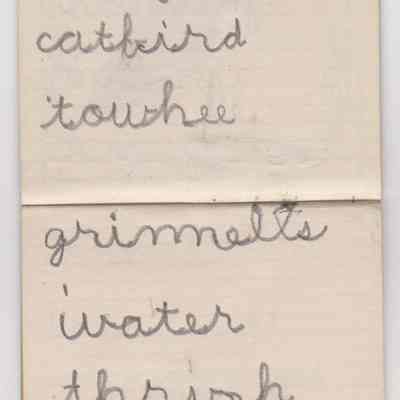 catbird
towhee
grinnells
water